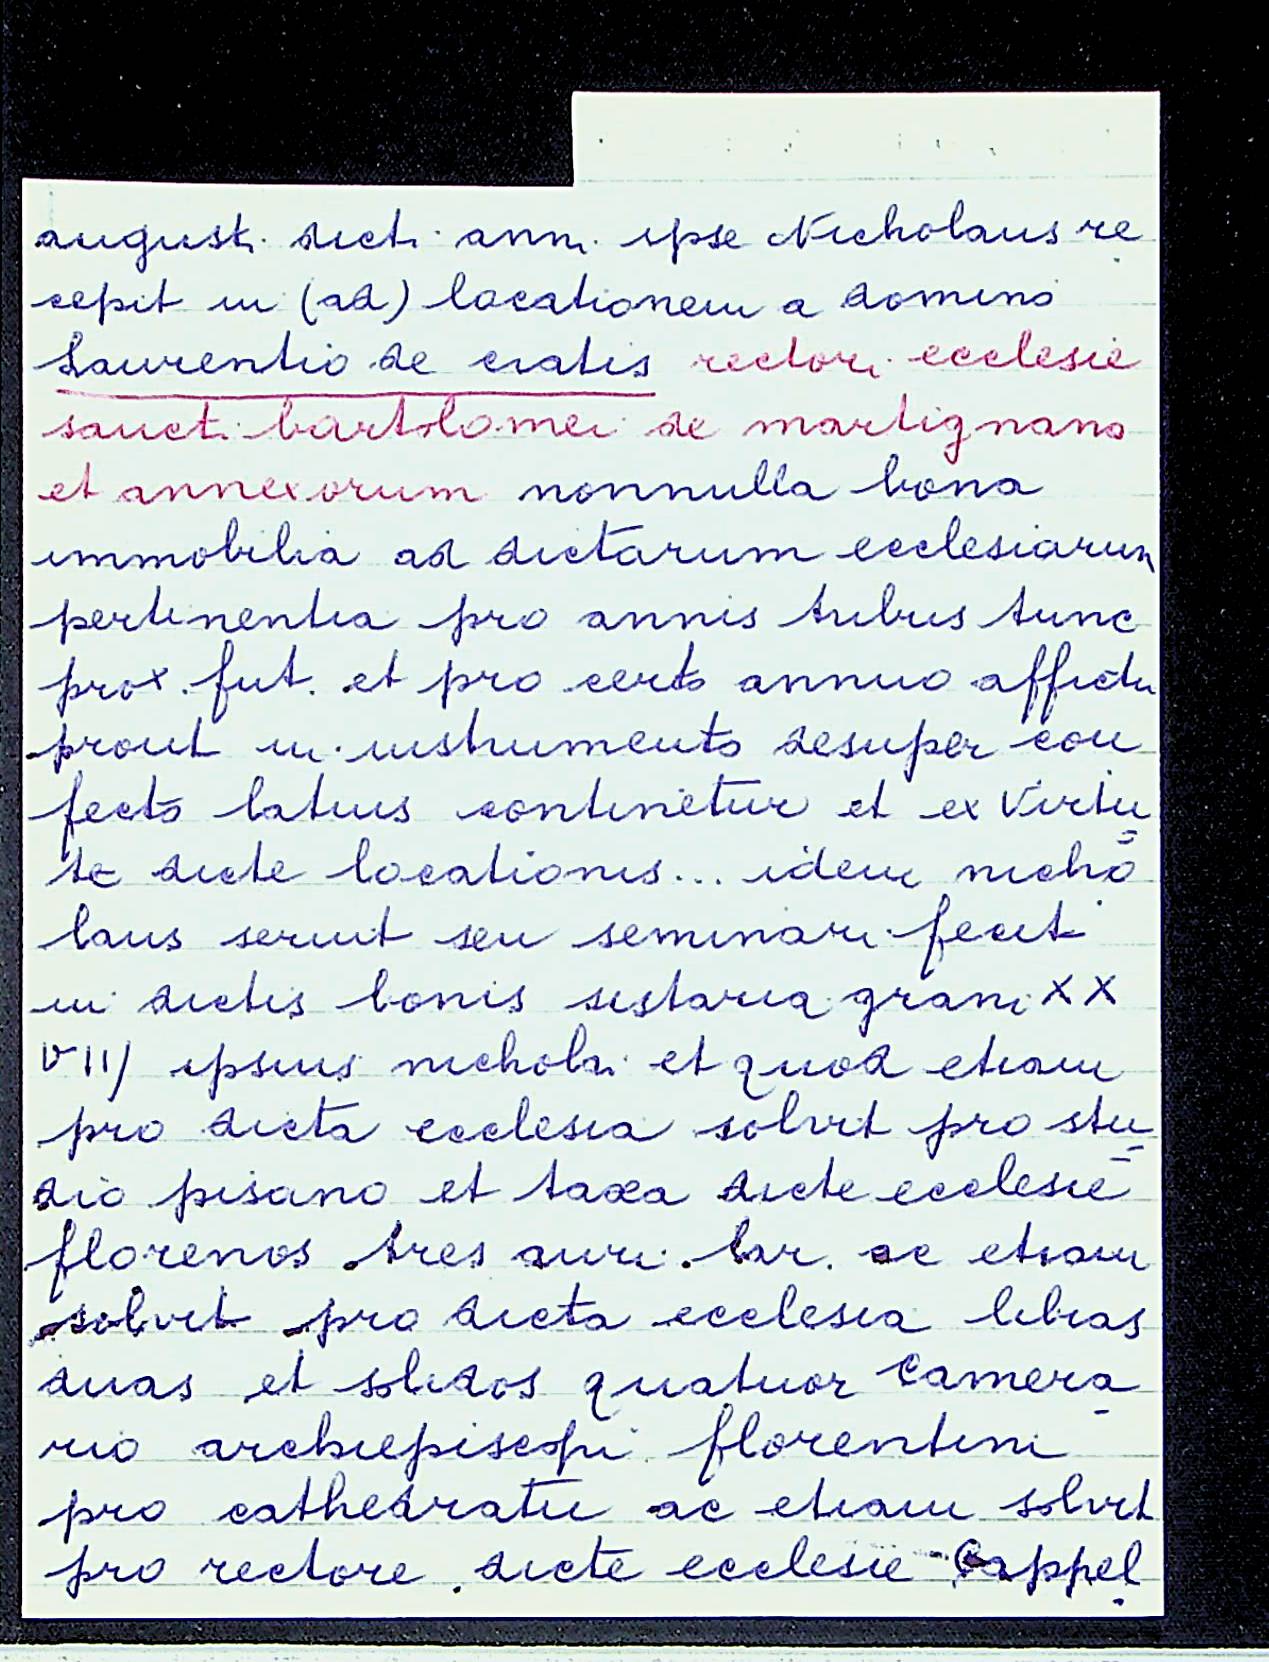 augusti dicti anni ipse Nicholaus re
cepit in (ad) locationem a domino
Laurentio de cratis rectori ecclesie
sancti bartolomei de martignano
et annexorum nonnulla bona
immobilia ad dictarum ecclesiarum
pertinentia pro annis tribus tunc
prox. fut. et pro certo annuo affictu
prout in instrumento desuper con
fecto latius continetur et ex Virtu
te dicte locationis... idem nicho
laus seruit seu seminari fecit
in dictis bonis sistaria grani XX
VIIJ ipsius nicholai et quod etiam
pro dicta ecclesia solvit pro stu
dio pisano et taxa dicte ecclesie
florenos tres auri. lar. ac etiam
solvit pro dicta ecclesia libras
duas et solidos quatuor Camera
rio archiepiscopi florentini
pro cathedratu ac etiam solvit
pro rectore dicte ecclesie Cappel